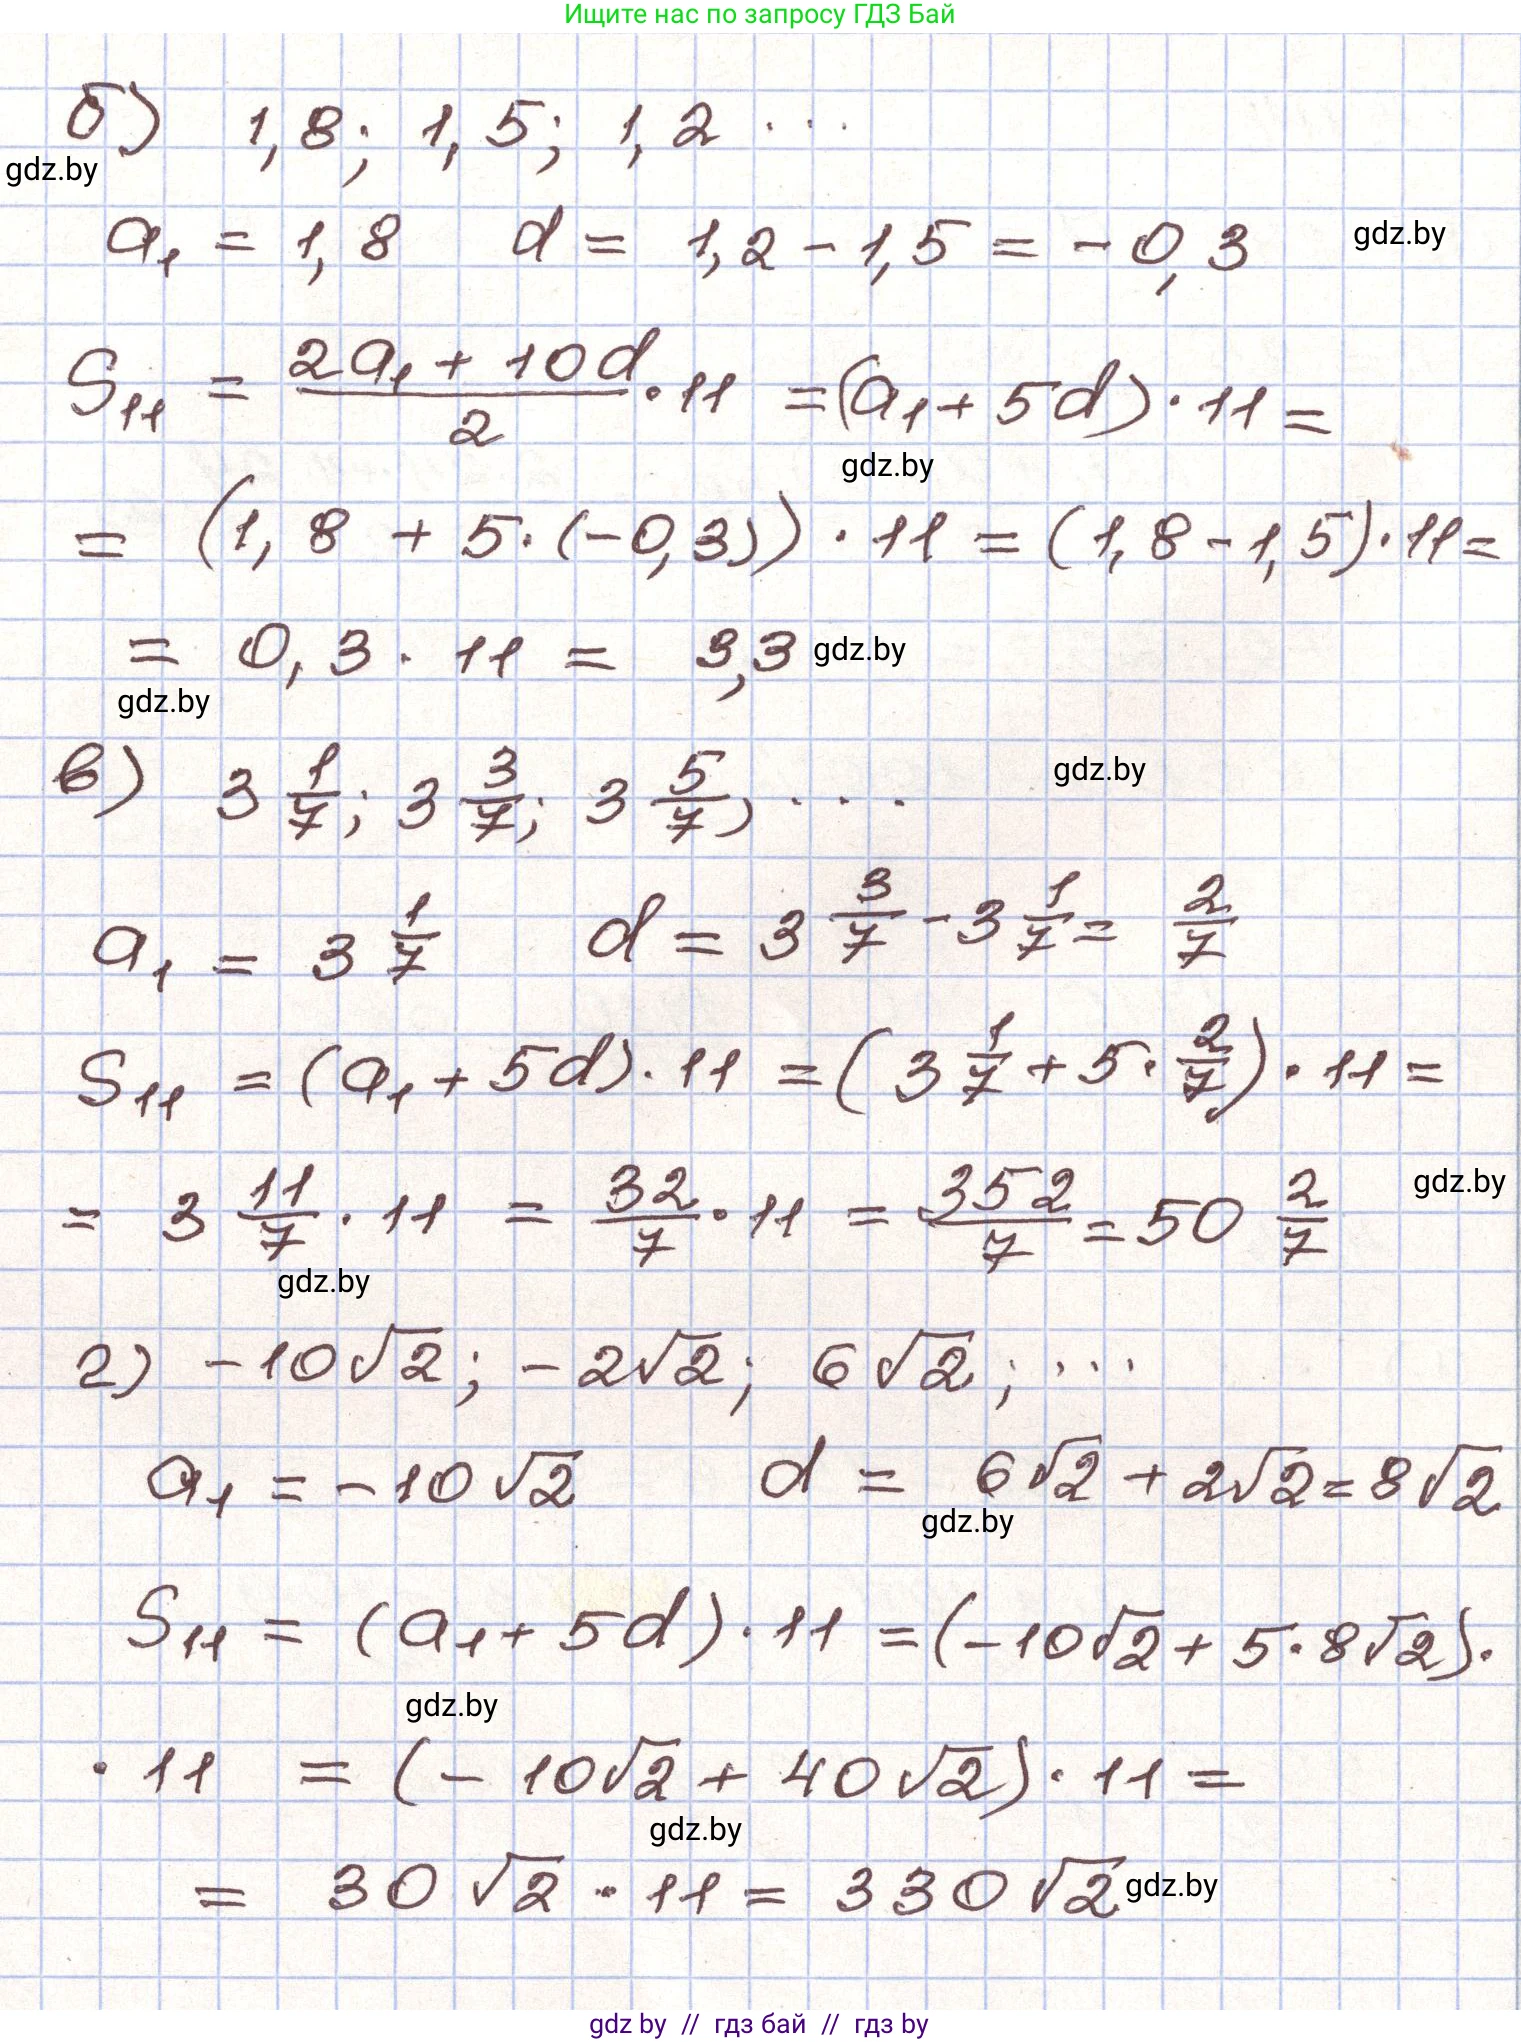 Ищите нас по запросу ГДЗ Бай
б) 1,8; 1,5; 1,2 ...
gdz.by
a₁ = 1,8 d = 1,2 - 1,5 = -0,3
gdz.by
S₁₁ = (2a₁ + 10d)/2 · 11 = (a₁ + 5d) · 11 =
gdz.by
= (1,8 + 5·(-0,3)) · 11 = (1,8 - 1,5) · 11 =
= 0,3 · 11 = 3,3
gdz.by
gdz.by
в) 3 1/7; 3 3/7; 3 5/7, ...
gdz.by
a₁ = 3 1/7 d = 3 3/7 - 3 1/7 = 2/7
S₁₁ = (a₁ + 5d) · 11 = (3 1/7 + 5 · 2/7) · 11 =
= 3 11/7 · 11 = 32/7 · 11 = 352/7 = 50 2/7
gdz.by
gdz.by
г) -10√2; -2√2; 6√2; ...
a₁ = -10√2 d = 6√2 + 2√2 = 8√2
gdz.by
S₁₁ = (a₁ + 5d) · 11 = (-10√2 + 5·8√2) ·
gdz.by
· 11 = (-10√2 + 40√2) · 11 =
gdz.by
= 30√2 · 11 = 330√2
gdz.by
gdz by // гдз бай // гдз by